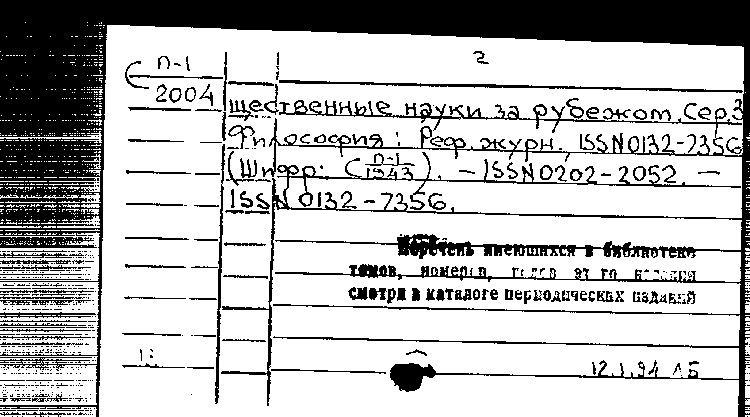 С П-1 2
2004 щественные науки за рубежом. Сер. 3
Философия: Реф. журн., ISSN 0132-7356
(Шифр: С П-1/1943). – ISSN 0202-2052. –
ISSN 0132-7356.
Перечень имеющихся в библиотеке
томов, номеров, годов
смотри в каталоге периодических изданий
12.1.94 ЛБ